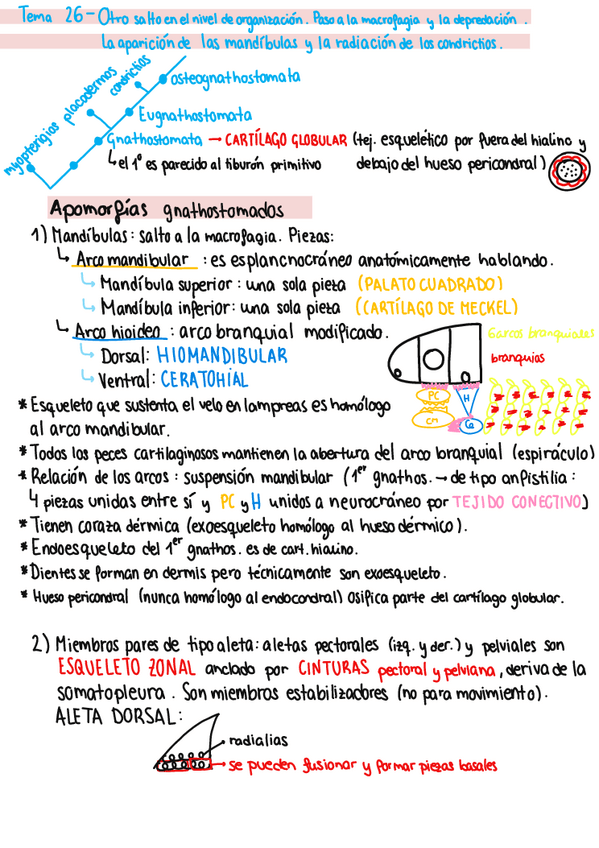 Tema 26 - Otro salto en el nivel de organización. Paso a la macrofagia y la depredación.
La aparición de las mandíbulas y la radiación de los condrictios.
myopterigios
placodermos
condrictios
osteognathostomata
Eugnathostomata
Gnathostomata → CARTÍLAGO GLOBULAR (tej. esquelético por fuera del hialino y
↳ el 1º es parecido al tiburón primitivo debajo del hueso pericondral)
Apomorfías gnathostomados
1) Mandíbulas: salto a la macrofagia. Piezas:
↳ Arco mandibular : es esplancnocráneo anatómicamente hablando.
↳ Mandíbula superior : una sola pieza (PALATO CUADRADO)
↳ Mandíbula inferior: una sola pieza ((CARTÍLAGO DE MECKEL)
↳ Arco hioideo : arco branquial modificado.
↳ Dorsal: HIOMANDIBULAR
↳ Ventral: CERATOHIAL
6arcos branquiales
branquias
PC
H
CM
Ce
* Esqueleto que sustenta el velo en lampreas es homólogo
al arco mandibular.
* Todos los peces cartilaginosos mantienen la abertura del arco branquial (espiráculo)
* Relación de los arcos : suspensión mandibular (1er gnathos. → de tipo anfistilia :
4 piezas unidas entre sí y PC y H unidos a neurocráneo por TEJIDO CONECTIVO)
* Tienen coraza dérmica (exoesqueleto homólogo al hueso dérmico).
* Endoesqueleto del 1er gnathos. es de cart. hialino.
* Dientes se forman en dermis pero técnicamente son exoesqueleto.
* Hueso pericondral (nunca homólogo al endocondral) osifica parte del cartílago globular.
2) Miembros pares de tipo aleta: aletas pectorales (izq. y der.) y pelviales son
ESQUELETO ZONAL anclado por CINTURAS pectoral y pelviana, deriva de la
somatopleura. Son miembros estabilizadores (no para movimiento).
ALETA DORSAL:
radialias
→ se pueden fusionar y formar piezas basales